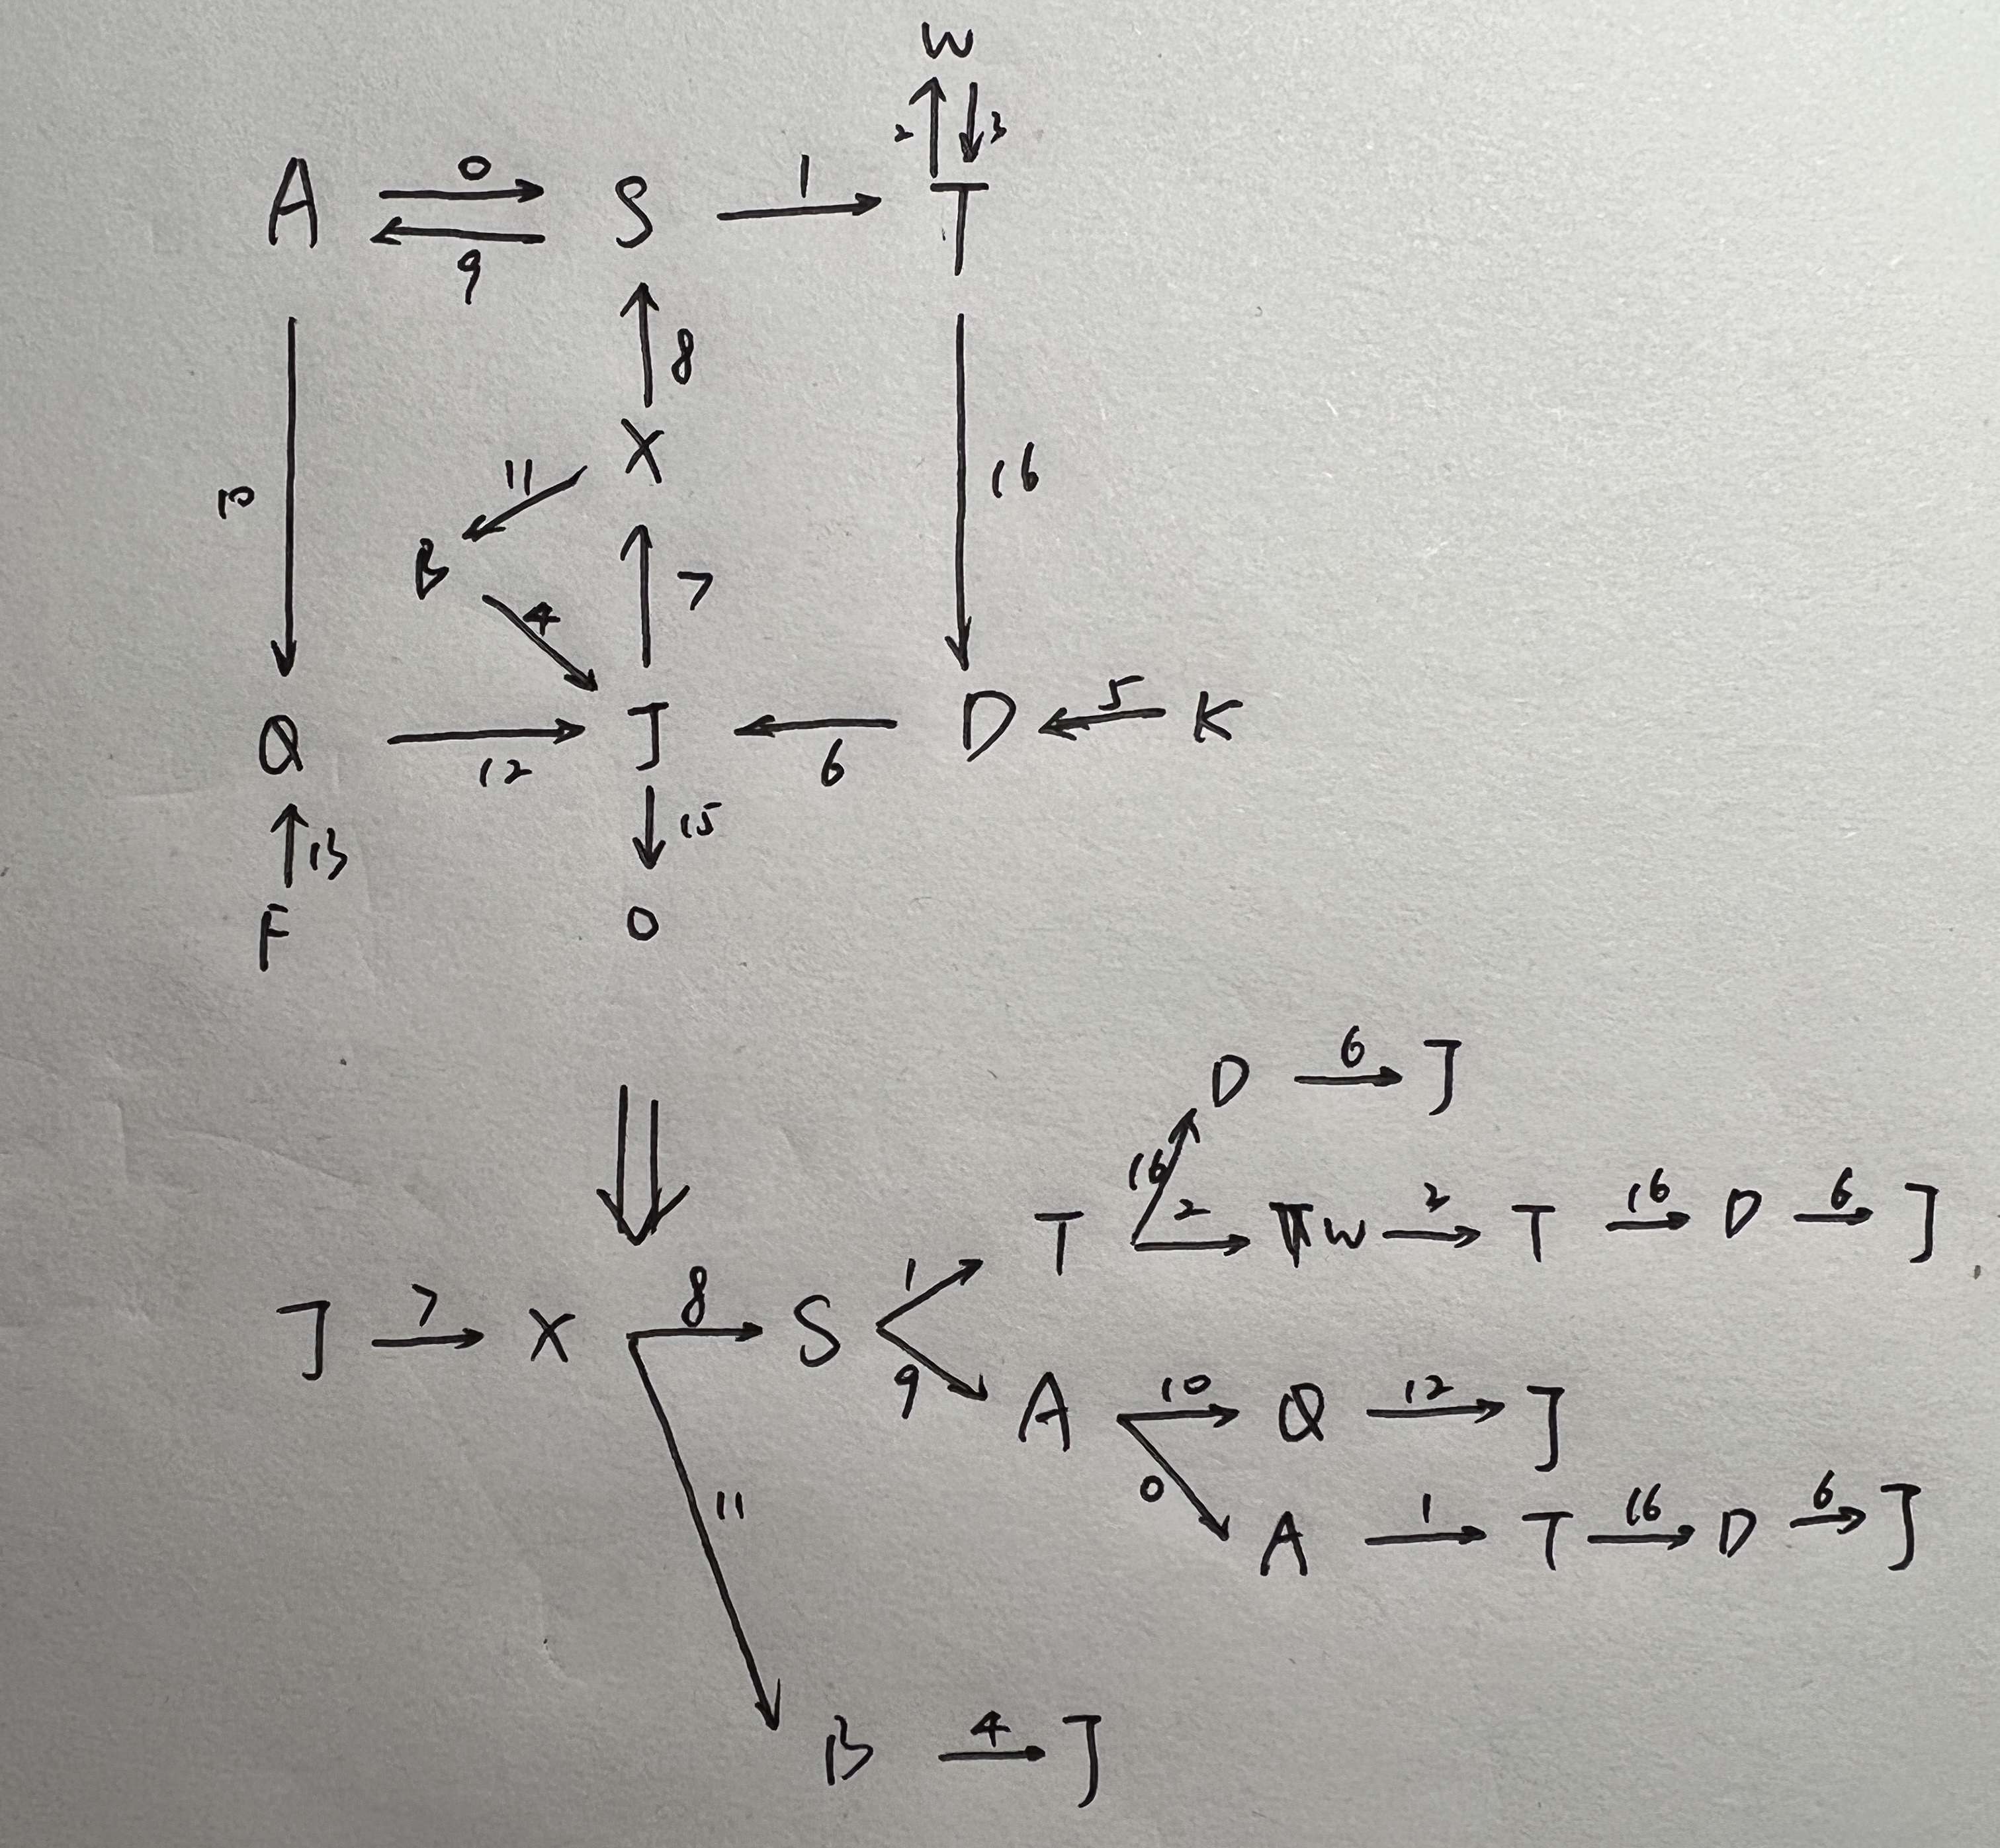 W
2 3
A 0 S 1 T
9
8
X
11
10 16
B
7
4
Q 12 J 6 D 5 K
13 15
F O
D 6 J
16
T 2 W 2 T 16 D 6 J
1
J 7 X 8 S
9
A 10 Q 12 J
0
11
A 1 T 16 D 6 J
B 4 J